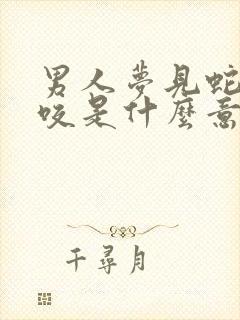 男人夢見蛇
咬是什麼意
千尋月